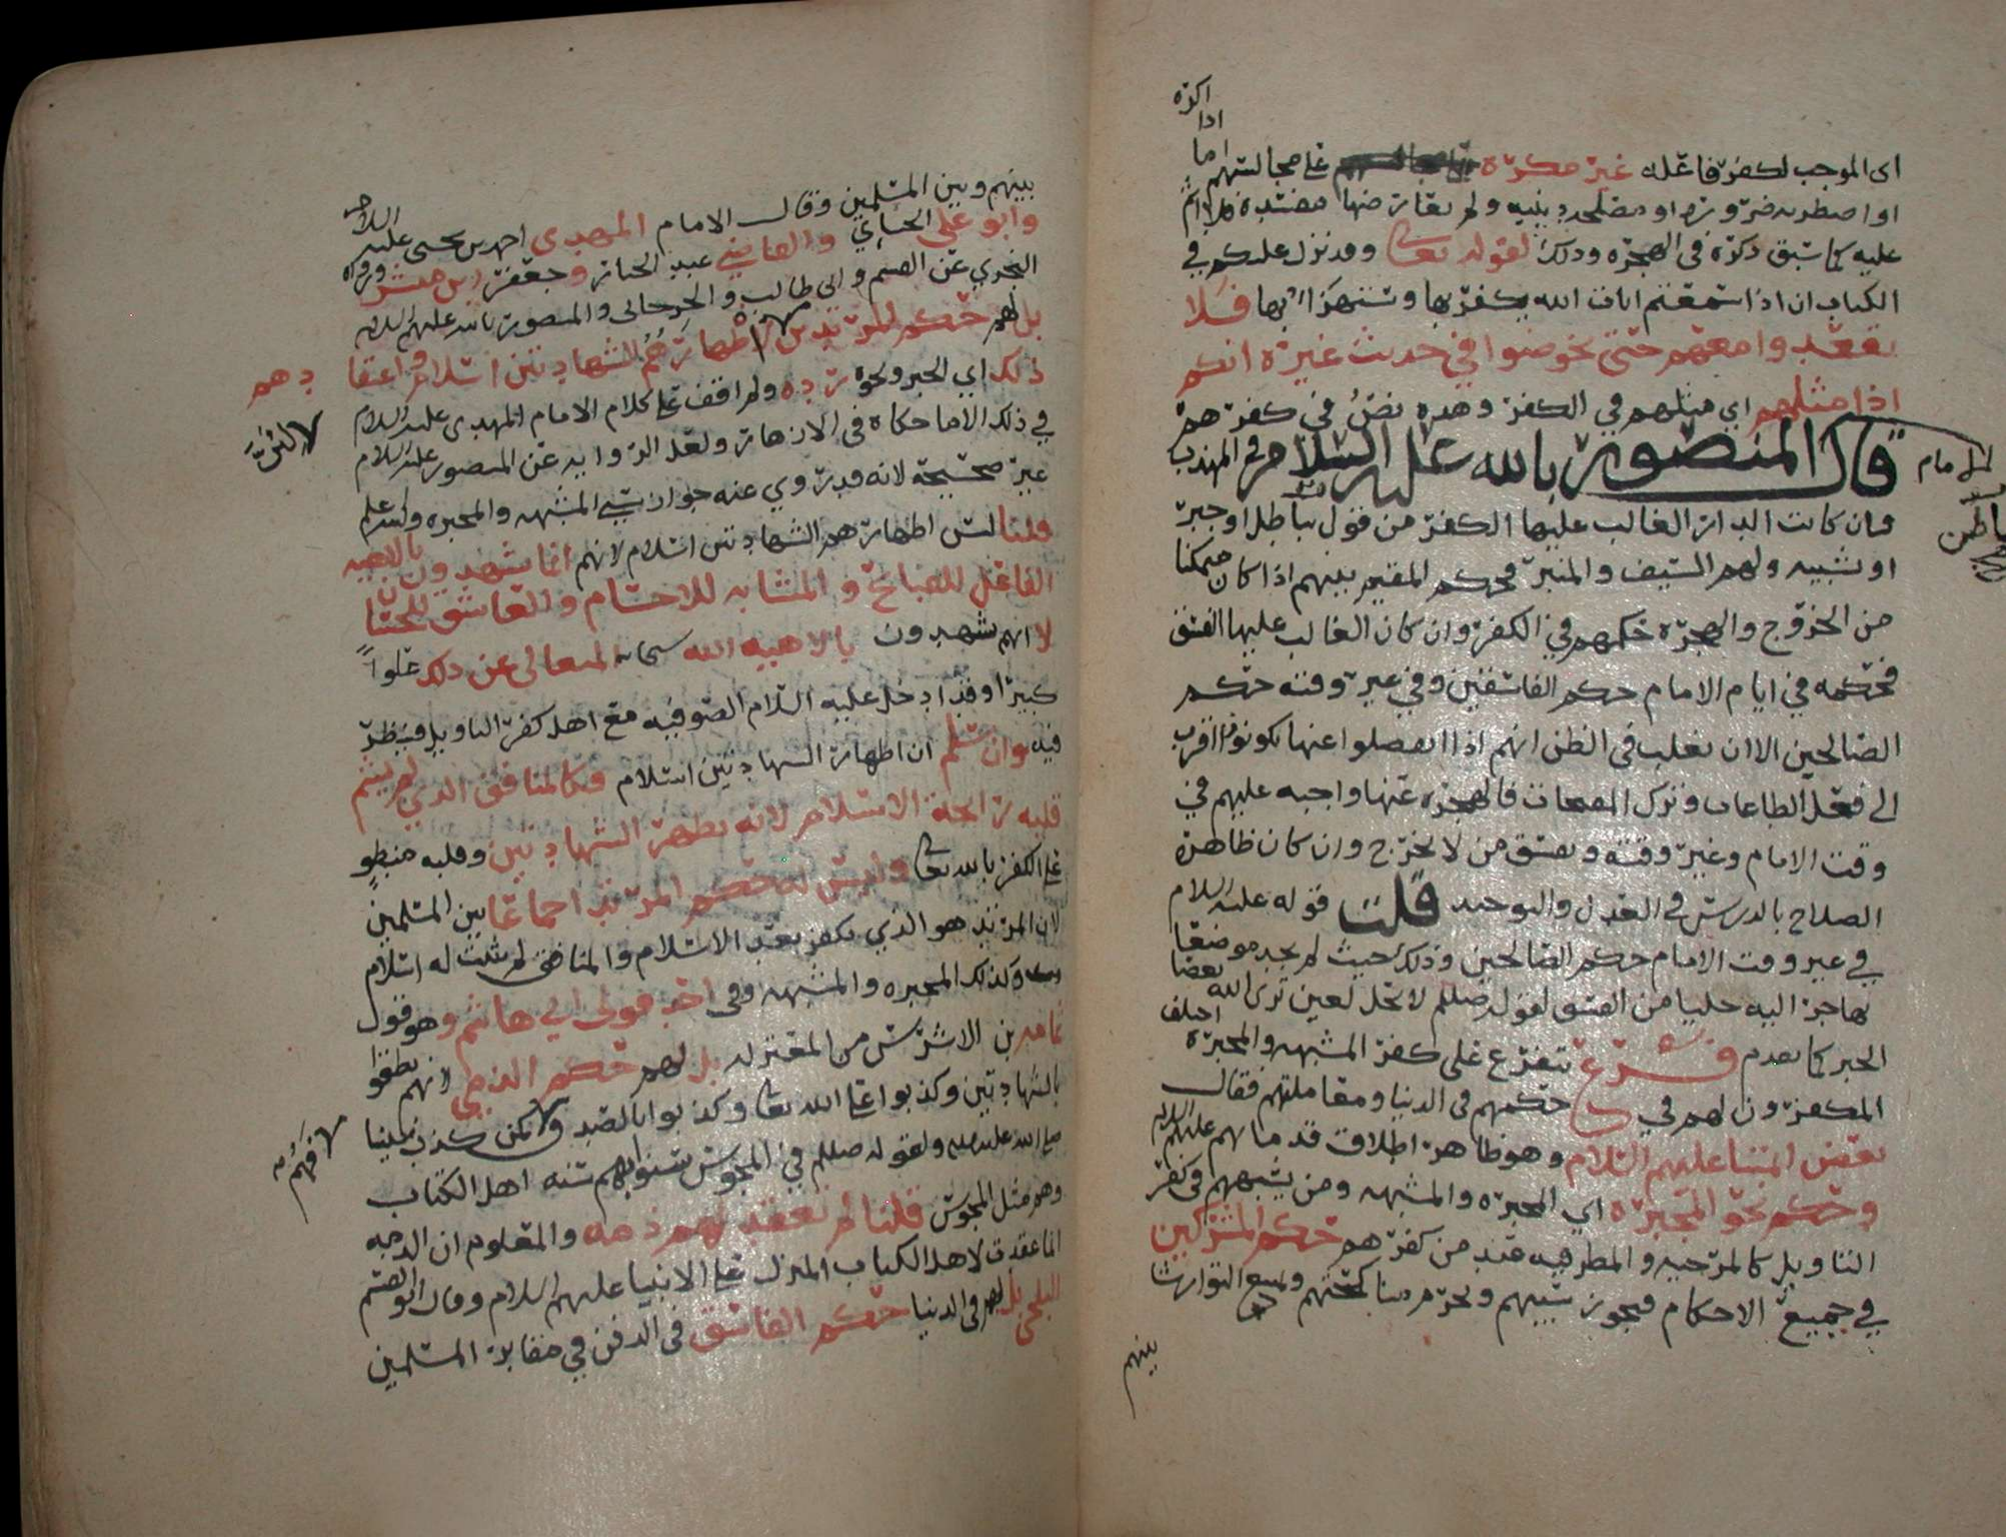 اكره
اذا
اى الموجب لكفر فاعله غير مكره على مجالستهم اما
او اضطر به ضرورة او مصلحه دينيه ولم يعارضها مفسدة فلا اثم
عليه كما سبق ذكره فى الهجره وذلك لقوله تعالى وقد نزل عليكم في
الكتاب ان اذا سمعتم ايات الله يكفر بها ويستهزا بها فلا
تقعدوا معهم حتى يخوضوا في حديث غيره انكم
اذا مثلهم اي مثلهم في الكفر وهذه نص في كفرهم
قال الامام المنصور بالله عليه السلام في المهذب
فان كانت الدار الغالب عليها الكفر من قول بباطل او جبر
او تشبيه ولهم السيف والمنبر فحكم المقيم بينهم اذا كان متمكنا
من الخروج والهجرة حكمهم في الكفر وان كان الغالب عليها الفسق
فحكمه في ايام الامام حكم الفاسقين وفي غير وقته حكم
الصالحين الا ان يغلب فى الظن انهم اذا انفصلوا عنها يكونوا اقرب
الى فعل الطاعات وترك المقبحات فالهجره عنها واجبه عليهم في
وقت الامام وغير وقته ويفسق من لا يخرج وان كان ظاهره
الصلاح بالدرس في العدل والتوحيد قلت قوله عليه السلام
في غير وقت الامام حكم الصالحين وذلك حيث لم يجد موضعا
يهاجر اليه خليا من الفسق لقوله صللم لا يحل لعين ترى الله يعصا
الخبر كما تقدم فرع يتفرع على كفر المشبهه والمجبرة اختلف
المكفرون لهم في حكمهم فى الدنيا ومعاملتهم فقال
بعض ائمتنا عليهم السلام وهو ظاهر اطلاق قدمائهم عليهم السلام
وحكم نحو المجبره اي المجبره والمشبهه ومن يشبههم في كفر
التاويل كالمرجيه والمطرفيه عند من كفرهم حكم المشركين
في جميع الاحكام فيجوز سبيهم ويحرم مناكحتهم ويمنع التوارث
بينهم
بينهم وبين المسلمين وقال الامام المهدى احمد بن يحيى عليه السلام
وابو علي الجبائي والقاضي عبد الجبار وجعفر بن مبشر ورواه
النجري عن القسم وابى طالب والجرجانى والمنصور بالله عليهم السلام
بل لهم حكم المرتدين لاظهارهم الشهادتين اسلام واعتقادهم
ذلك اي الجبر ونحوه رده ولم اقف على كلام الامام المهدى عليه السلام
في ذلك الا ما حكاه فى الازهار ولعل الروايه عن المنصور عليه السلام
غير صحيحة لانه قد روي عنه جواز سبي المشبهه والمجبره والله اعلم
قلنا ليس اظهارهم الشهادتين اسلام لانهم انما يشهدون بالاهيه
الفاعل للقبائح والمشابه للاجسام والعاشق للحسان
لا انهم يشهدون بالاهيه الله سبحانه المتعالى عن ذلك علواً
كبيرا وقد ادخل عليه السلام الصوفيه مع اهل كفر التاويل فينظر
فيه وان سلم ان اظهار الشهادتين اسلام فكالمنافق الذي لم يشم
قلبه رائحة الاسلام لانه يظهر الشهادتين وقلبه منطوٍ
على الكفر بالله تعالى وليس له حكم المرتد اجماعا بين المسلمين
لان المرتد هو الذي يكفر بعد الاسلام والمنافق لم يثبت له اسلام
وكذلك المجبره والمشبهه وفى احد قولى ابي هاشم وهو قول
ثمامه بن الاشرس من المعتزله بل لهم حكم الذمي لانهم نطقوا
بالشهادتين وكذبوا على الله تعالى وكذبوا بالصدق ولا كمن كذب نبينا
صلى الله عليه وسلم ولقوله صللم في المجوس سنوا بهم سنه اهل الكتاب
وهم مثل المجوس قلنا لم تعقد لهم ذمه والمعلوم ان الذمه
انما عقدت لاهل الكتاب المنزل على الانبيا عليهم السلام وقال ابو القسم
البلخي بل لهم فى الدنيا حكم الفاسق فى الدفن في مقابر المسلمين